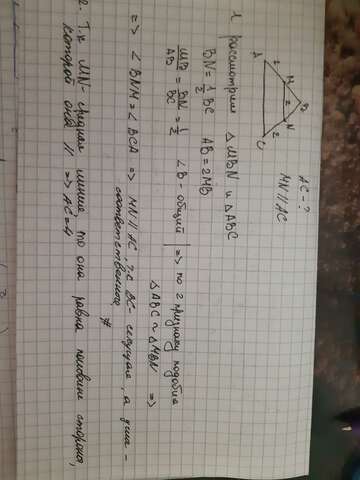 AC - ?
MN || AC
B
M
N
A
C
2
2
2
1. Рассмотрим △MBN и △ABC
BN = 1/2 BC AB = 2MB
MB/AB = BN/BC = 1/2 ∠B - общий | => по 2 признаку подобия
△ABC ~ △MBN =>
=> ∠BNM = ∠BCA => MN || AC, т.к BC - секущая, а углы -
соответственные #
2. Т.к MN - средняя линия, то она равна половине стороны,
которой она || => AC = 4